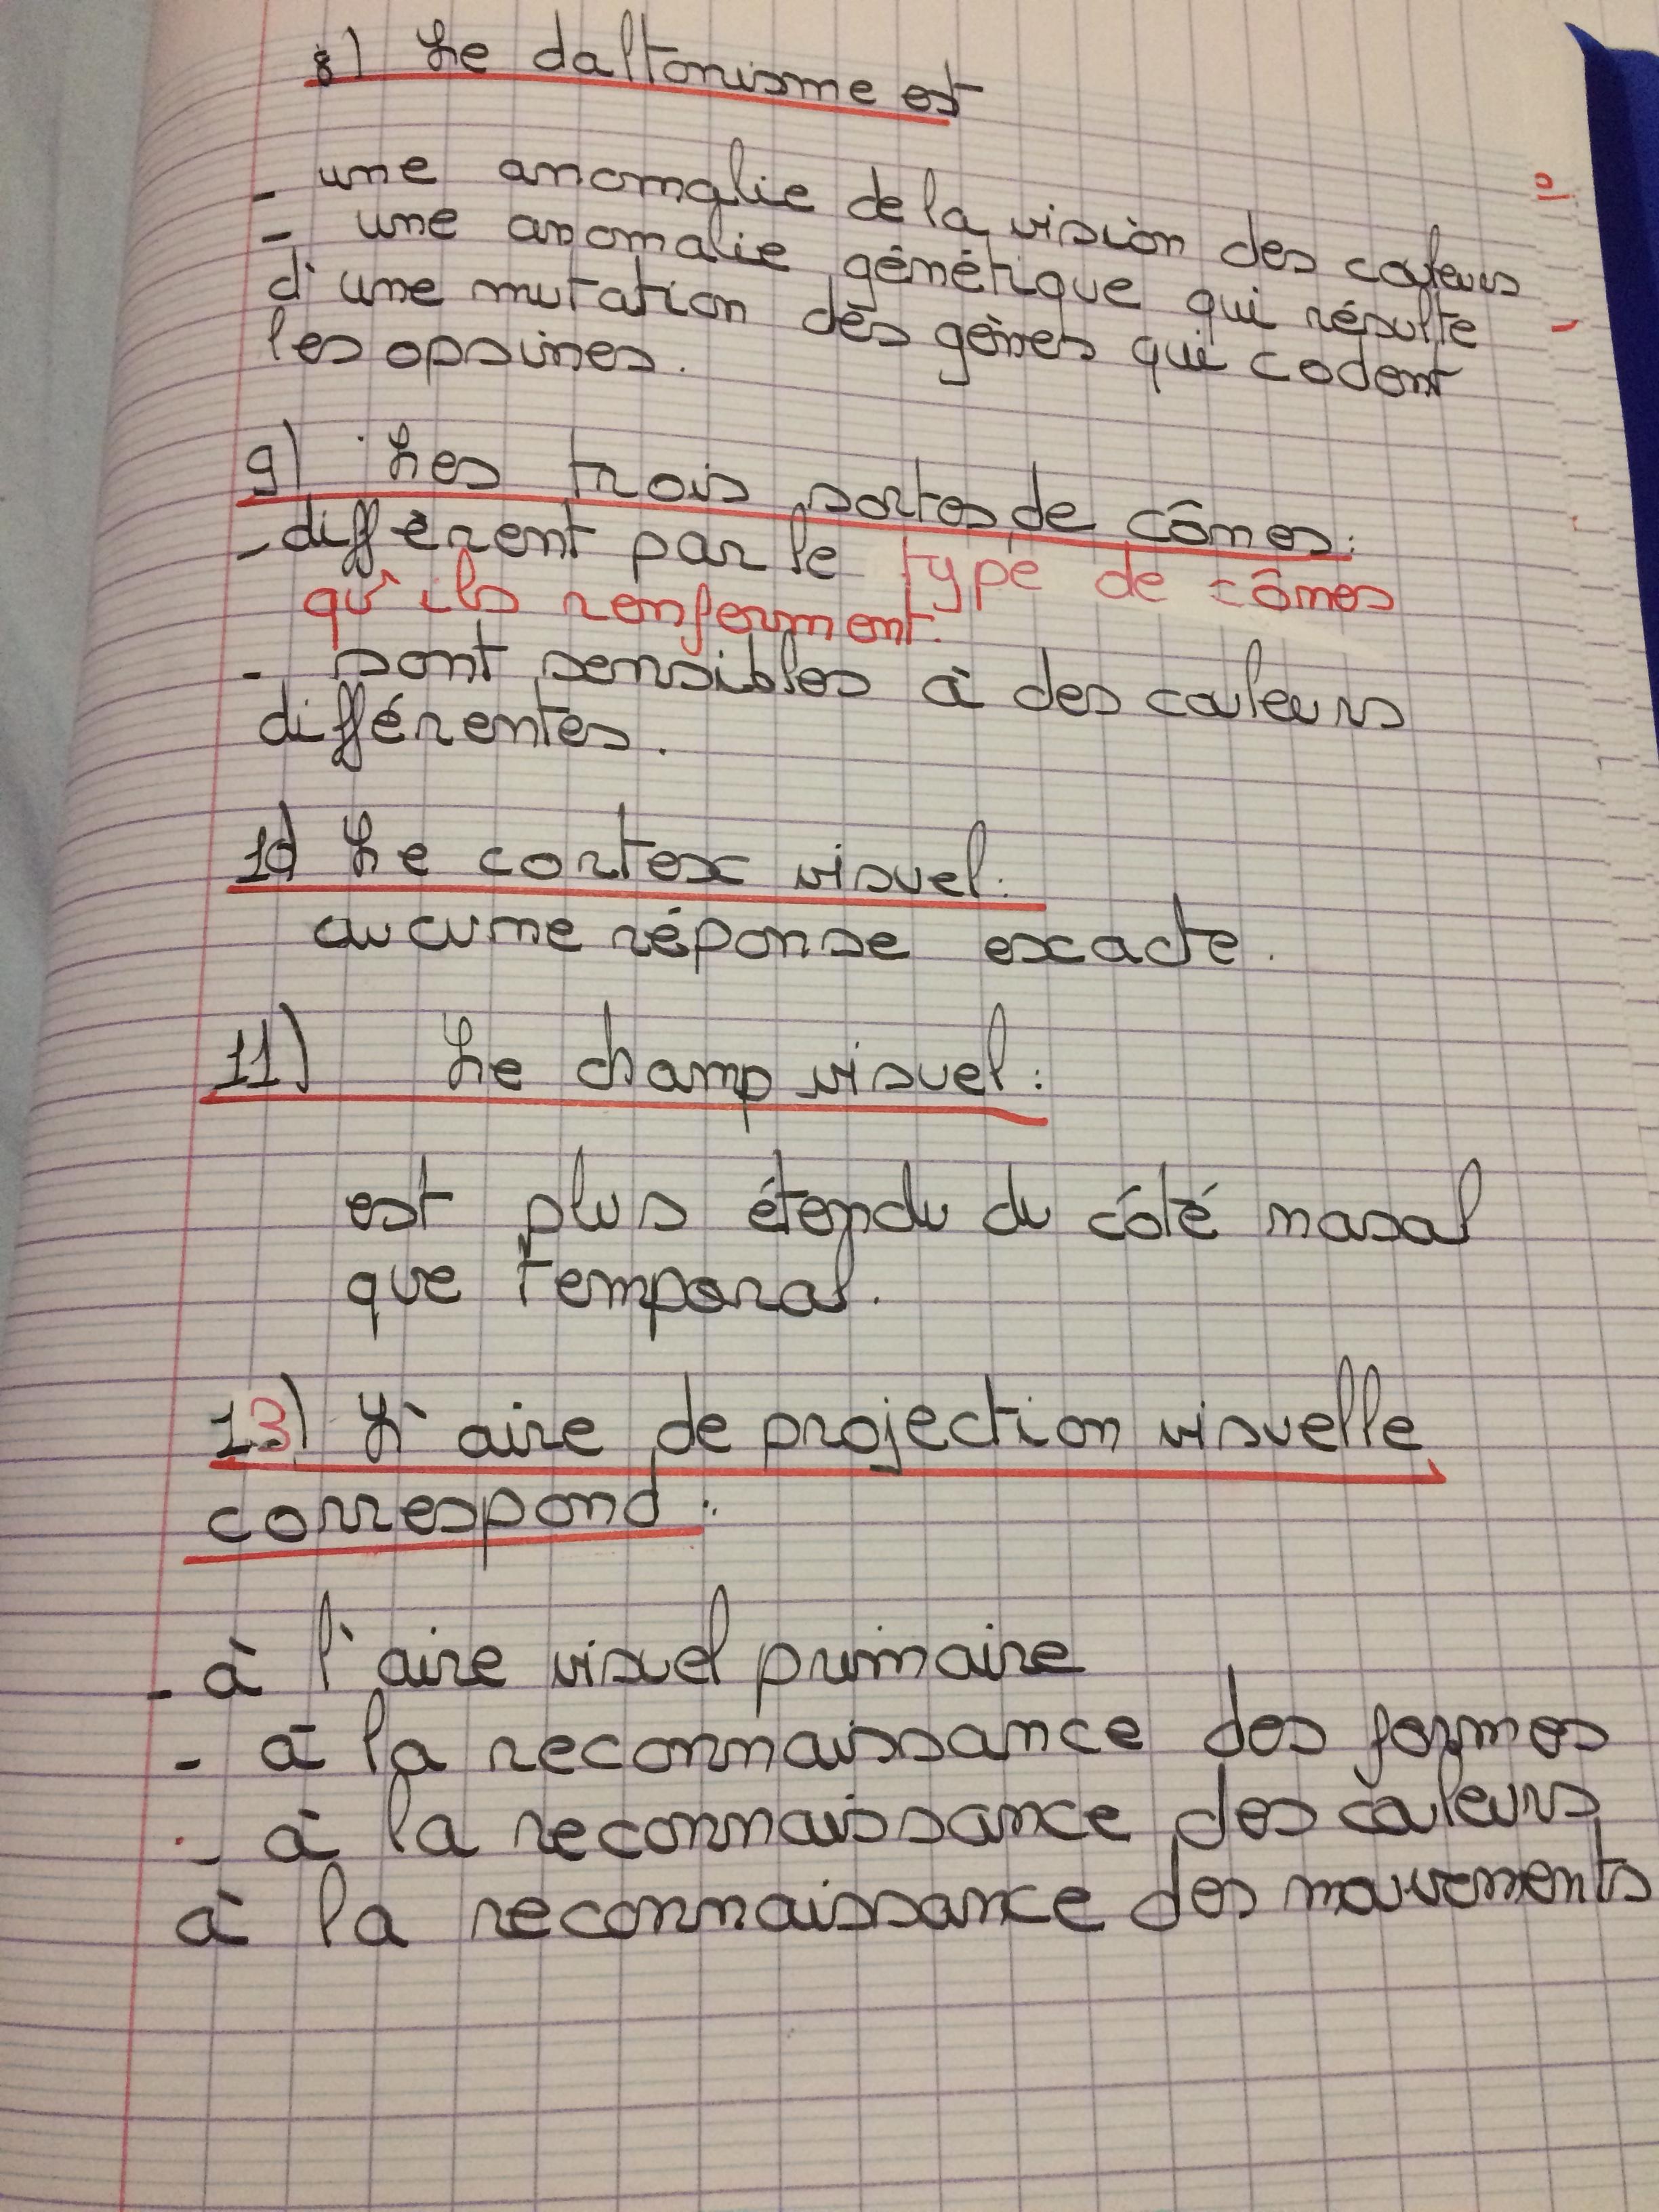 8) Le daltonisme est
- une anomalie de la vision des couleurs
- une anomalie génétique qui résulte
d'une mutation des gènes qui codent
les opsines.
9) Les trois sortes de cônes:
- diffèrent par le type de cônes
qu'ils renferment.
- sont sensibles à des couleurs
différentes.
10) Le cortex visuel:
aucune réponse exacte.
11) Le champ visuel:
est plus étendu du côté nasal
que temporal.
13) L'aire de projection visuelle
correspond:
- à l'aire visuel primaire
- à la reconnaissance des formes
- à la reconnaissance des couleurs
à la reconnaissance des mouvements